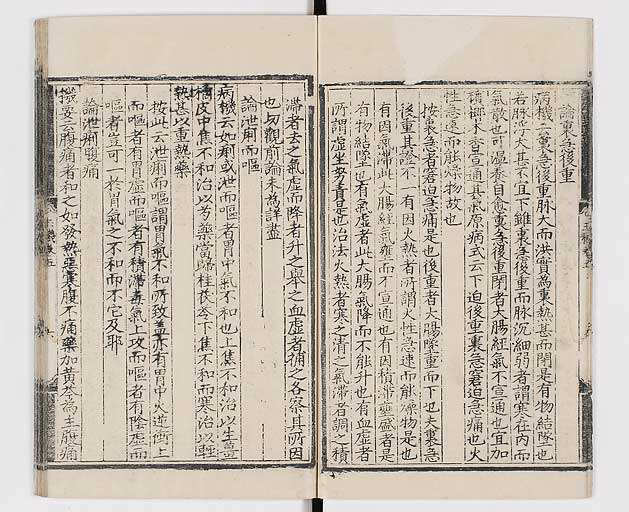 論裏急後重
病機云裏急後重脉大而洪實為裏熱甚而閉是有物結墜也
若脉浮大甚不宜下雖裏急後重而脉沉細弱者謂寒在内而
氣散也可温養自愈裏急後重閉者大腸經氣不宣通也宜加
檳榔木香宣通其氣原病式云下迫後重裏急窘迫急痛也火
性急速而能燥物故也
按裏急者窘迫急痛是也後重者大腸墜重而下也夫裏急
後重其證不一有因火熱者所謂火性急速而能燥物是也
有因氣滯此大腸經氣壅而不宣通也有因積滯壅盛者是
有物結墜也有氣虚者此大腸氣降而不能升也有血虚者
所謂虚坐努責是也治法火熱者寒之清之氣滯者調之積
滯者去之氣虚而降者升之舉之血虚者補之各察其所因
也切觀前論未為詳盡
論泄痢而嘔
病機云如痢或泄而嘔者胃中氣不和也上焦不和治以生薑
橘皮中焦不和治以芍藥當歸桂茯苓下焦不和而寒治以輕
熱甚以重熱藥
按此云泄痢而嘔謂胃氣不和所致蓋亦有胃中火逆衝上
而嘔者有胃虚而嘔者有積滯毒氣上攻而嘔者有陰虚而
嘔者豈可一於胃氣之不和而不它及耶
論泄痢腹痛
撥要云腹痛者和之如發熱惡寒腹不痛藥加黄芩為主腹痛